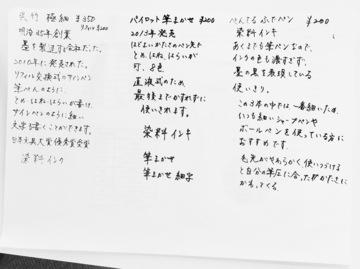 呉竹 極細 ¥350
リフィル ¥200
明治35年創業
墨を製造する会社だった。
2010年に発売された。
リフィル交換式のサインペン
筆ペンのように、
とめ、はね、はらいが書け、
サインペンのように細い
文字も書くことができます。
日本文具大賞優秀賞受賞
染料インク
パイロット 筆まかせ ¥200
2015年発売
ほどよいかたさのペン先で
とめ、はね、はらいが
可、8色
直液式のため、
最後までかすれずに
使いきれます。
染料インキ
筆まかせ
筆まかせ 細字
ぺんてる ふでペン ¥200
染料インキ
あくまでも筆ペンなので、
インクの色も濃すぎず、
墨の黒を表現している
使いきり。
この3本の中では一番細いため、
いつも細いシャープペンや
ボールペンを使っている方に
おすすめです。
毛先がやわらかく使いつづける
と自分の筆圧に合ったかたさに
かわってくる。